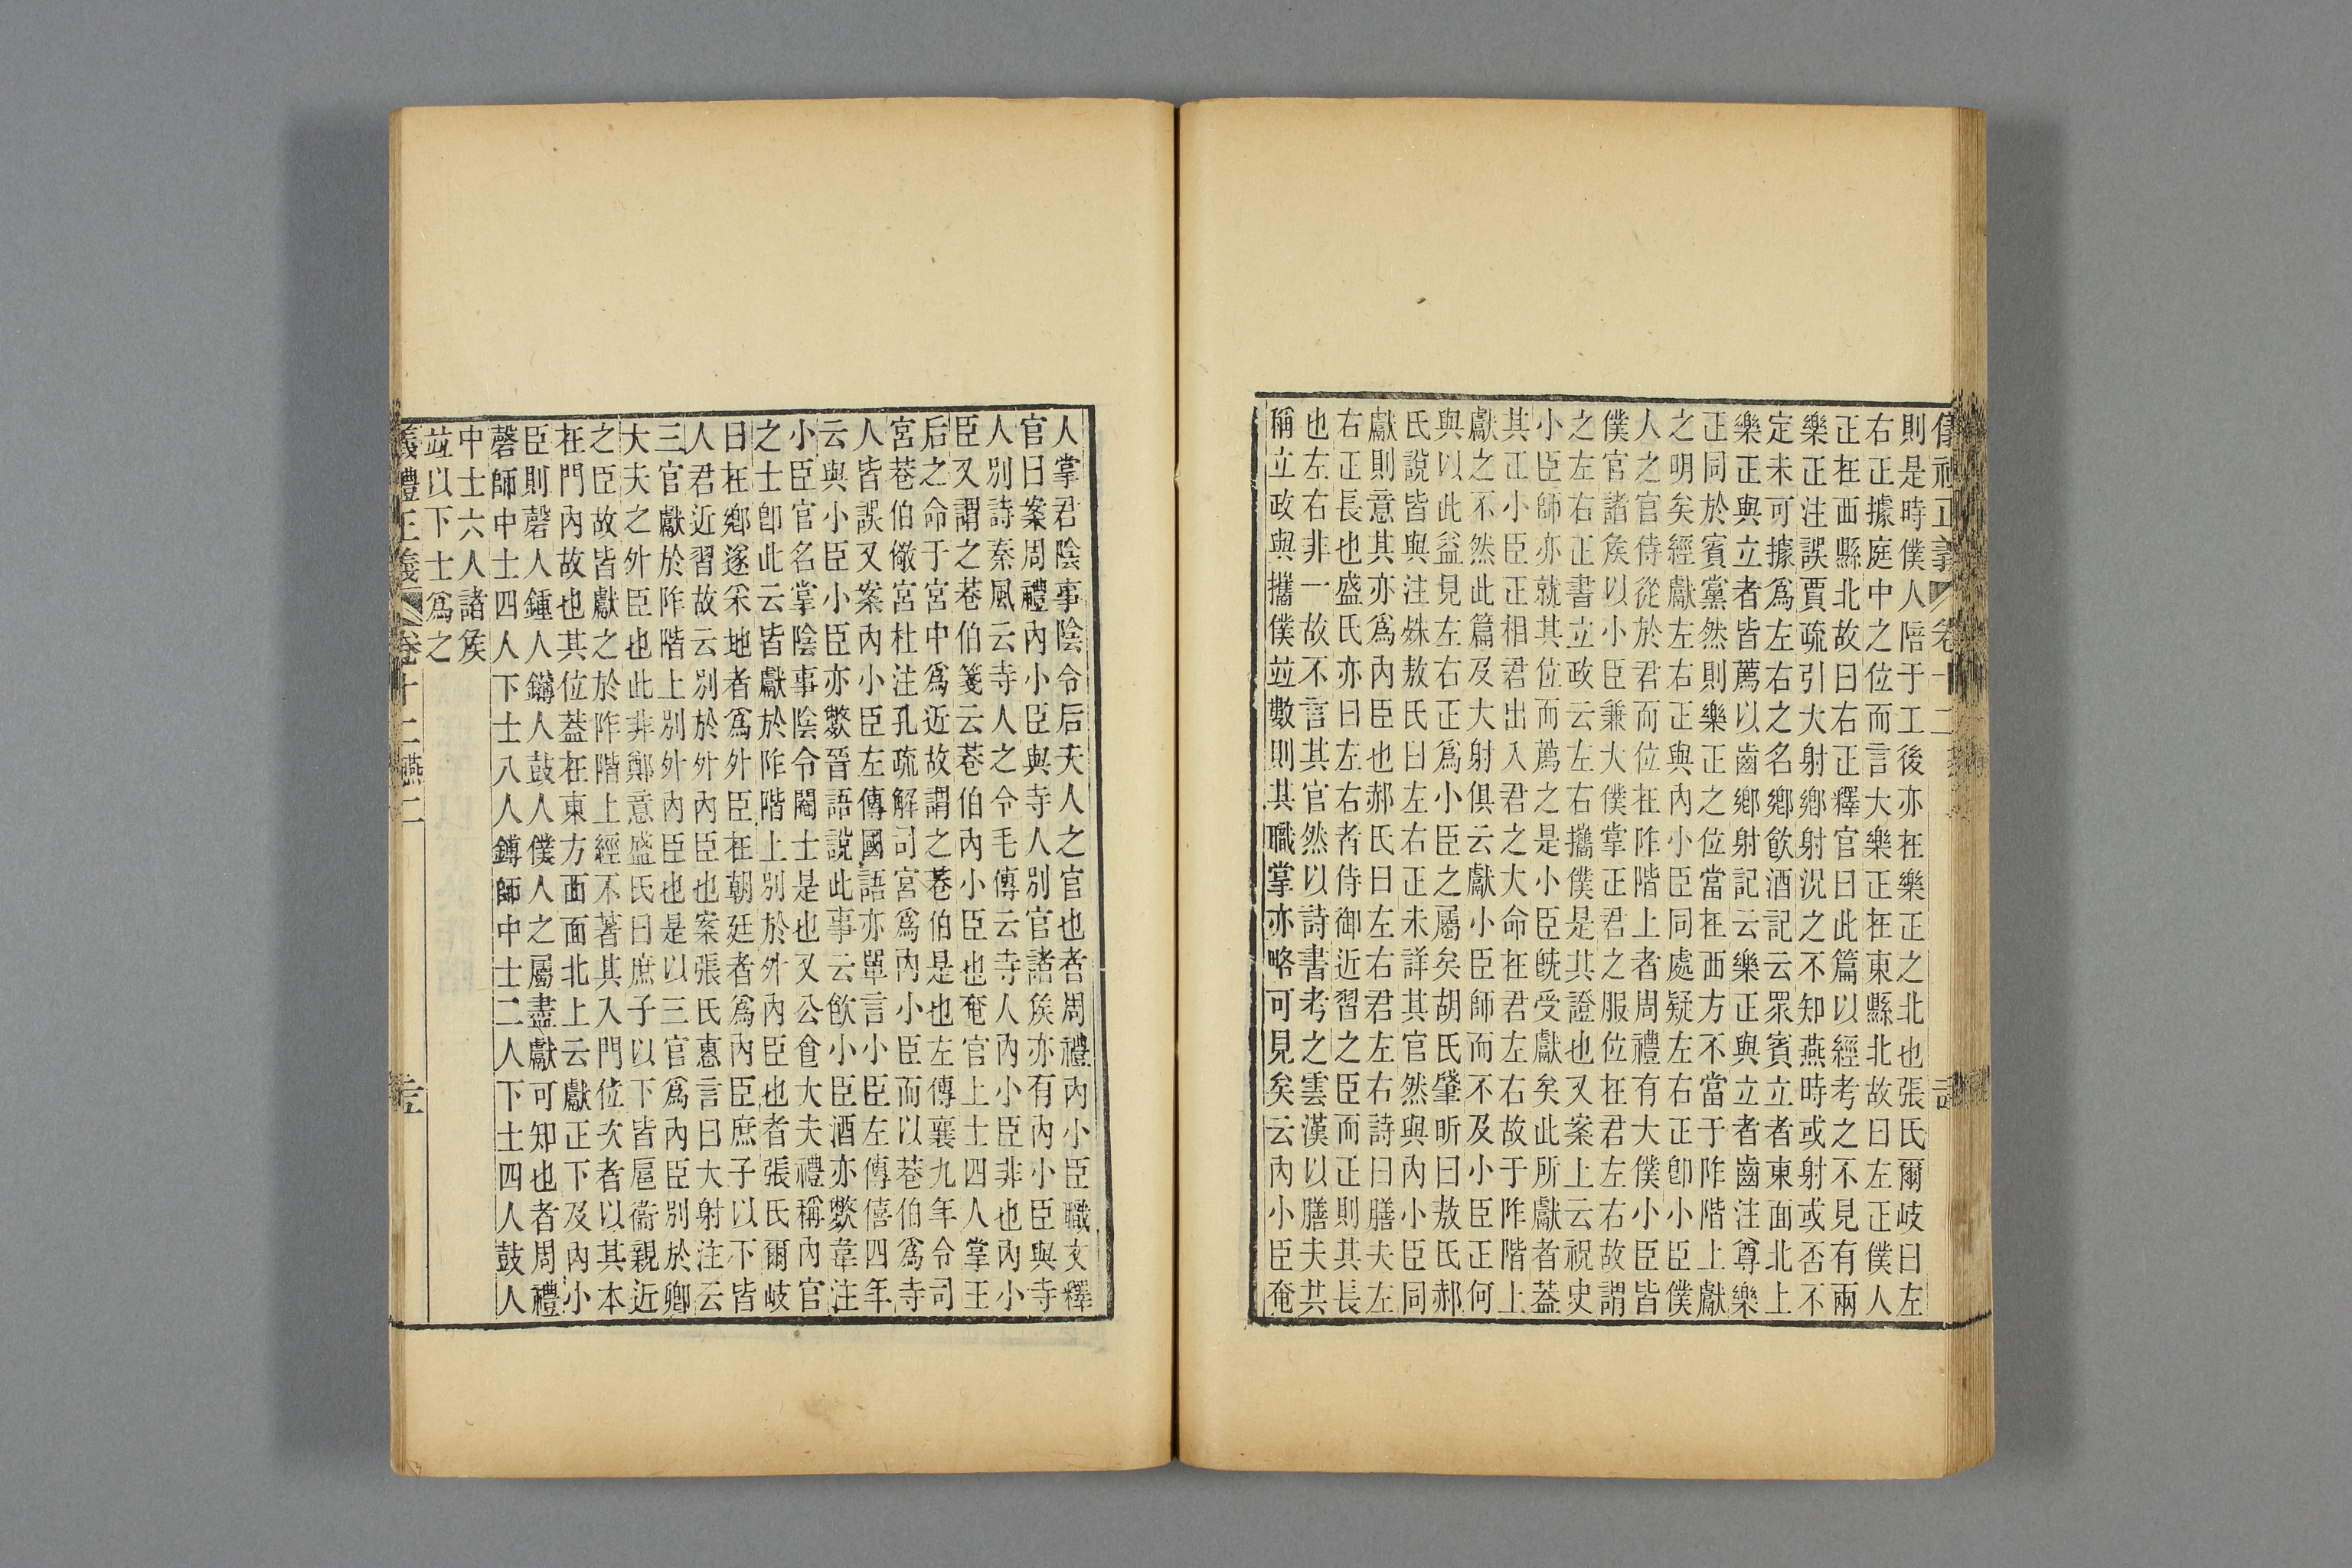 則是時僕人陪于工後亦在樂正之北也張氏爾岐曰左
右正據庭中之位而言大樂正在東縣北故曰左正僕人
正在西縣北故曰右正釋官曰此篇以經考之不見有兩
樂正注誤賈疏引大射鄉射況之不知燕時或射或否不
定未可據爲左右之名鄉飮酒記云眾賓立者東面北上
樂正與立者皆薦以齒鄉射記云樂正與立者齒注尊樂
正同於賓黨然則樂正之位當在西方不當于阼階上獻
之明矣經獻左右正與內小臣同處疑左右正卽小臣僕
人之官侍從於君而位在阼階上者周禮有大僕小臣皆
僕官諸矦以小臣兼大僕掌正君之服位在君左右故謂
之左右正書立政云左右攜僕是其證也又案上云祝史
小臣師亦就其位而薦之是小臣旣受獻矣此所獻者蓋
其正小臣正相君出入君之大命在君左右故于阼階上
獻之不然此篇及大射俱云獻小臣師而不及小臣正何
與以此益見左右正爲小臣之屬矣胡氏肇昕曰敖氏郝
氏說皆與注姝敖氏曰左右正未詳其官然與內小臣同
獻則意其亦爲內臣也郝氏曰左右君左右詩曰膳夫左
右正長也盛氏亦曰左右者侍御近習之臣而正則其長
也左右非一故不言其官然以詩書考之雲漢以膳夫共
稱立政與攜僕竝數則其職掌亦略可見矣云內小臣奄
人掌君陰事陰令后夫人之官也者周禮內小臣職文釋
官曰案周禮內小臣與寺人別官諸矦亦有內小臣與寺
人別詩秦風云寺人之令毛傳云寺人內小臣非也內小
臣又謂之巷伯箋云巷伯內小臣也奄官上士四人掌王
后之命于宮中爲近故謂之巷伯是也左傳襄九年令司
宮巷伯儆宮杜注孔疏解司宮爲內小臣而以巷伯爲寺
人皆誤又案內小臣左傳國語亦單言小臣左傳僖四年
云與小臣小臣亦斃晉語說此事云飮小臣酒亦斃韋注
小臣官名掌陰事陰令閽士是也又公食大夫禮稱內官
之士卽此云皆獻於阼階上別於外內臣也者張氏爾岐
曰在鄉遂采地者爲外臣在朝廷者爲內臣庶子以下皆
人君近習故云別於外內臣也案張氏惠言曰大射注云
三官獻於阼階上別外內臣也是以三官爲內臣別於卿
大夫之外臣也此非鄭意盛氏曰庶子以下皆扈衞親近
之臣故皆獻之於阼階上經不著其入門位次者以其本
在門內故也其位蓋在東方面面北上云獻正下及內小
臣則磬人鍾人鑮人鼓人僕人之屬盡獻可知也者周禮
磬師中士四人下士八人鎛師中士二人下士四人鼓人
中士六人諸矦
竝以下士爲之
禮正義 卷十二 燕二